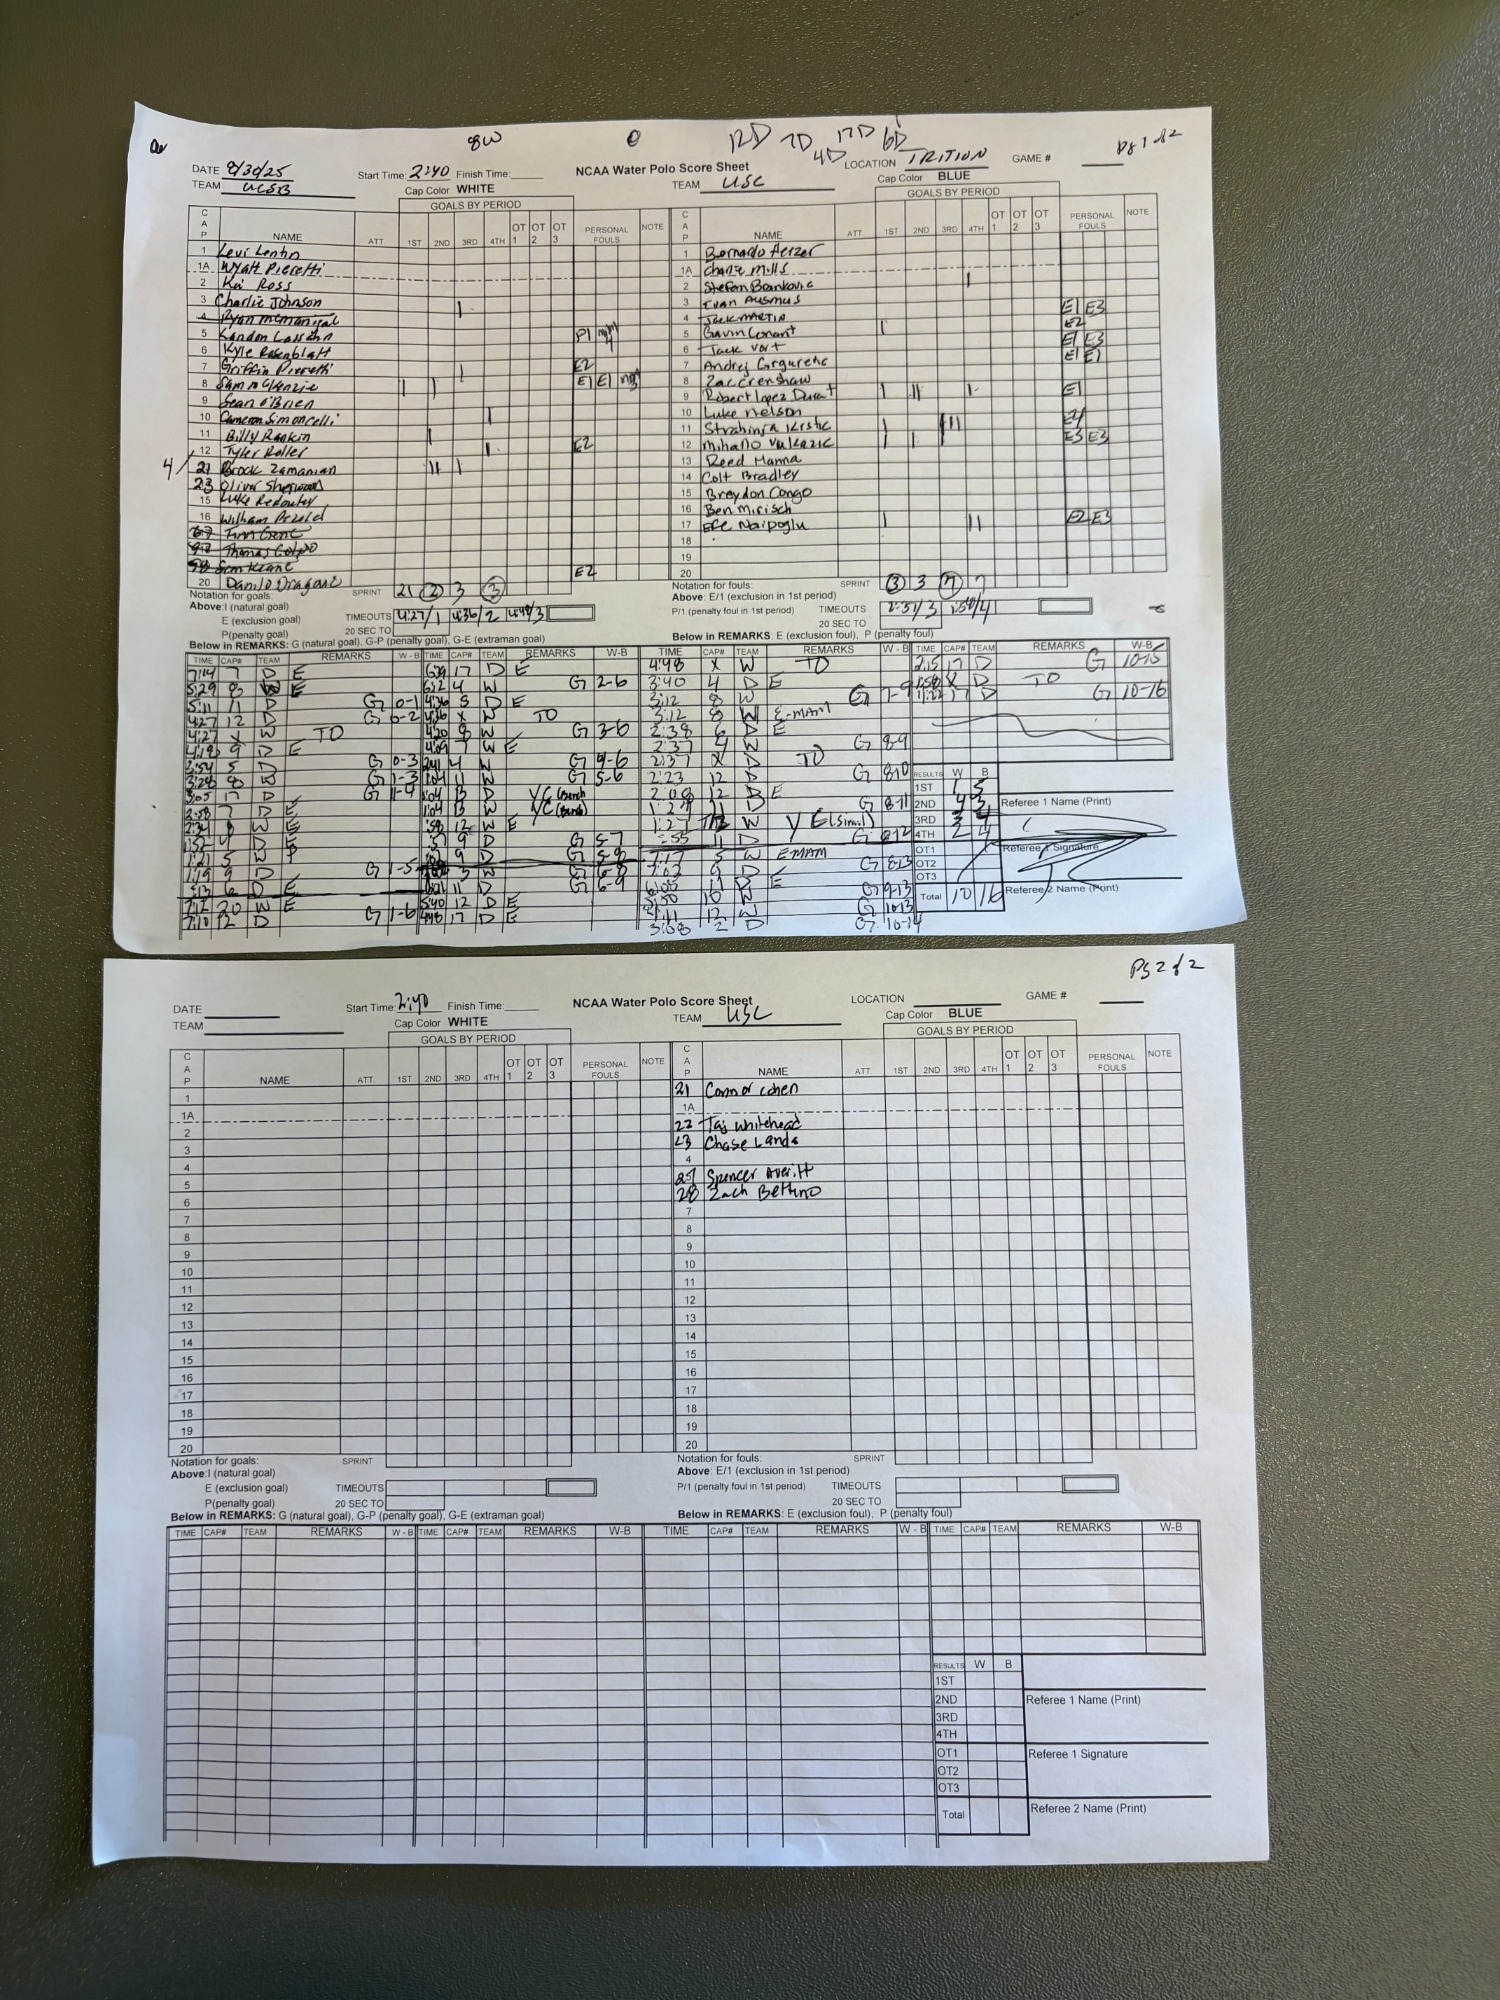 8W 12D 7D 4D 17D 6D Pg 1 of 2
DATE 8/30/25 Start Time: 2:40 Finish Time: NCAA Water Polo Score Sheet LOCATION TRITION GAME #
TEAM UCSB Cap Color WHITE TEAM USC Cap Color BLUE
GOALS BY PERIOD GOALS BY PERIOD
CAP NAME ATT. 1ST 2ND 3RD 4TH OT 1 OT 2 OT 3 PERSONAL FOULS NOTE CAP NAME ATT. 1ST 2ND 3RD 4TH OT 1 OT 2 OT 3 PERSONAL FOULS NOTE
1 Levi Lentin 1 Bernardo Herzer
1A Wyatt Pieretti 1A Charlie Mills
2 Kai Ross 2 Stefan Brankovic |
3 Charlie Johnson | 3 Evan Ausmus E1 E3
4 Ryan McManigal 4 Jack MARTIN E2
5 Landon Lassahn P1 5 Gavin Conant | E1 E3
6 Kyle Rosenblatt 6 Jack Vort E1 E1
7 Griffin Pieretti | E2 7 Andrej Grgurevic
8 Sam McKenzie | | E1 E1 8 Zac Crenshaw
9 Sean O'Brien 9 Robert Lopez Duart | || | E1
10 Cameron Simoncelli | 10 Luke Nelson
11 Billy Rankin | 11 Strahinja Krstic | | ||| E4
12 Tyler Roller | E2 12 Mihailo Vukazic | | E3 E3
4/ 21 Brock Zamanian || | 13 Reed Hanna
23 Oliver Sherwood 14 Colt Bradley
15 Luke Redoutey 15 Braydon Congo
16 William Pezold 16 Ben Mirisch
Finn Gene 17 Efe Naipoglu | || E2 E3
Thomas Colpo 18
Sam Keane 19
20 Danilo Dragovic E2 20
Notation for goals: SPRINT 21 2 3 3 Notation for fouls: SPRINT 3 3 7 7
Above:I (natural goal) Above: E/1 (exclusion in 1st period)
E (exclusion goal) TIMEOUTS 4:27/1 4:36/2 4:48/3 P/1 (penalty foul in 1st period) TIMEOUTS 2:37/3 1:58/4
P(penalty goal) 20 SEC TO 20 SEC TO
Below in REMARKS: G (natural goal), G-P (penalty goal), G-E (extraman goal) Below in REMARKS: E (exclusion foul), P (penalty foul)
TIME CAP# TEAM REMARKS W - B TIME CAP# TEAM REMARKS W-B TIME CAP# TEAM REMARKS W - B TIME CAP# TEAM REMARKS W-B
7:14 7 D E 6:29 17 D E 4:48 X W TO 2:15 17 D G 10-15
5:29 8 W E 6:22 4 W G 2-6 3:40 4 D E 1:58 X D TO
5:11 11 D G 0-1 4:36 5 D E 3:12 8 W G 7-9 1:22 17 D G 10-16
4:27 12 D G 0-2 4:36 X W TO 3:12 8 W E-MAM
4:27 X W TO 4:20 8 W G 3-6 2:38 6 D E
4:18 9 D E 4:09 7 W E 2:37 4 W G 8-9
2:54 5 D G 0-3 2:41 4 W G 4-6 2:37 X D TO
3:28 8 W G 1-3 1:04 11 W G 5-6 2:23 12 D G 8-10
3:05 17 D G 1-4 1:04 B D YC (Bench) 2:08 12 D E
2:58 7 D E 1:04 B W YC (Bench) 1:27 11 D G 8-11
2:34 8 W E :58 12 W E 1:27 W Y E (Simul)
1:52 4 D E :37 9 D G 5-7 :55 11 D G 8-12
1:21 5 W P 9 D G 5-8 7:17 5 W EMAM
1:19 9 D G 1-5 3 W G 6-8 7:02 9 D G 8-13
:13 6 D E 6:21 11 D G 6-9 6:05 11 D E
7:12 20 W E 5:40 12 D E 5:50 10 W G 9-13
7:10 12 D G 1-6 4:48 17 D E 4:11 12 W G 10-13
3:08 2 D G 10-14
RESULTS W B
1ST 1 5
2ND 4 3 Referee 1 Name (Print)
3RD 3 4
4TH 2 4
OT1 Referee 1 Signature
OT2
OT3
Total 10 16 Referee 2 Name (Print)
Pg 2 of 2
DATE Start Time: 2:40 Finish Time: NCAA Water Polo Score Sheet LOCATION GAME #
TEAM Cap Color WHITE TEAM USC Cap Color BLUE
GOALS BY PERIOD GOALS BY PERIOD
CAP NAME ATT. 1ST 2ND 3RD 4TH OT 1 OT 2 OT 3 PERSONAL FOULS NOTE CAP NAME ATT. 1ST 2ND 3RD 4TH OT 1 OT 2 OT 3 PERSONAL FOULS NOTE
1 21 Connor Cohen
1A 1A
2 22 Taj Whitehead
3 23 Chase Landa
4 4
5 27 Spencer Averitt
6 28 Zach Bettino
7 7
8 8
9 9
10 10
11 11
12 12
13 13
14 14
15 15
16 16
17 17
18 18
19 19
20 20
Notation for goals: SPRINT Notation for fouls: SPRINT
Above:I (natural goal) Above: E/1 (exclusion in 1st period)
E (exclusion goal) TIMEOUTS P/1 (penalty foul in 1st period) TIMEOUTS
P(penalty goal) 20 SEC TO 20 SEC TO
Below in REMARKS: G (natural goal), G-P (penalty goal), G-E (extraman goal) Below in REMARKS: E (exclusion foul), P (penalty foul)
TIME CAP# TEAM REMARKS W - B TIME CAP# TEAM REMARKS W-B TIME CAP# TEAM REMARKS W - B TIME CAP# TEAM REMARKS W-B
RESULTS W B
1ST
2ND Referee 1 Name (Print)
3RD
4TH
OT1 Referee 1 Signature
OT2
OT3
Total Referee 2 Name (Print)